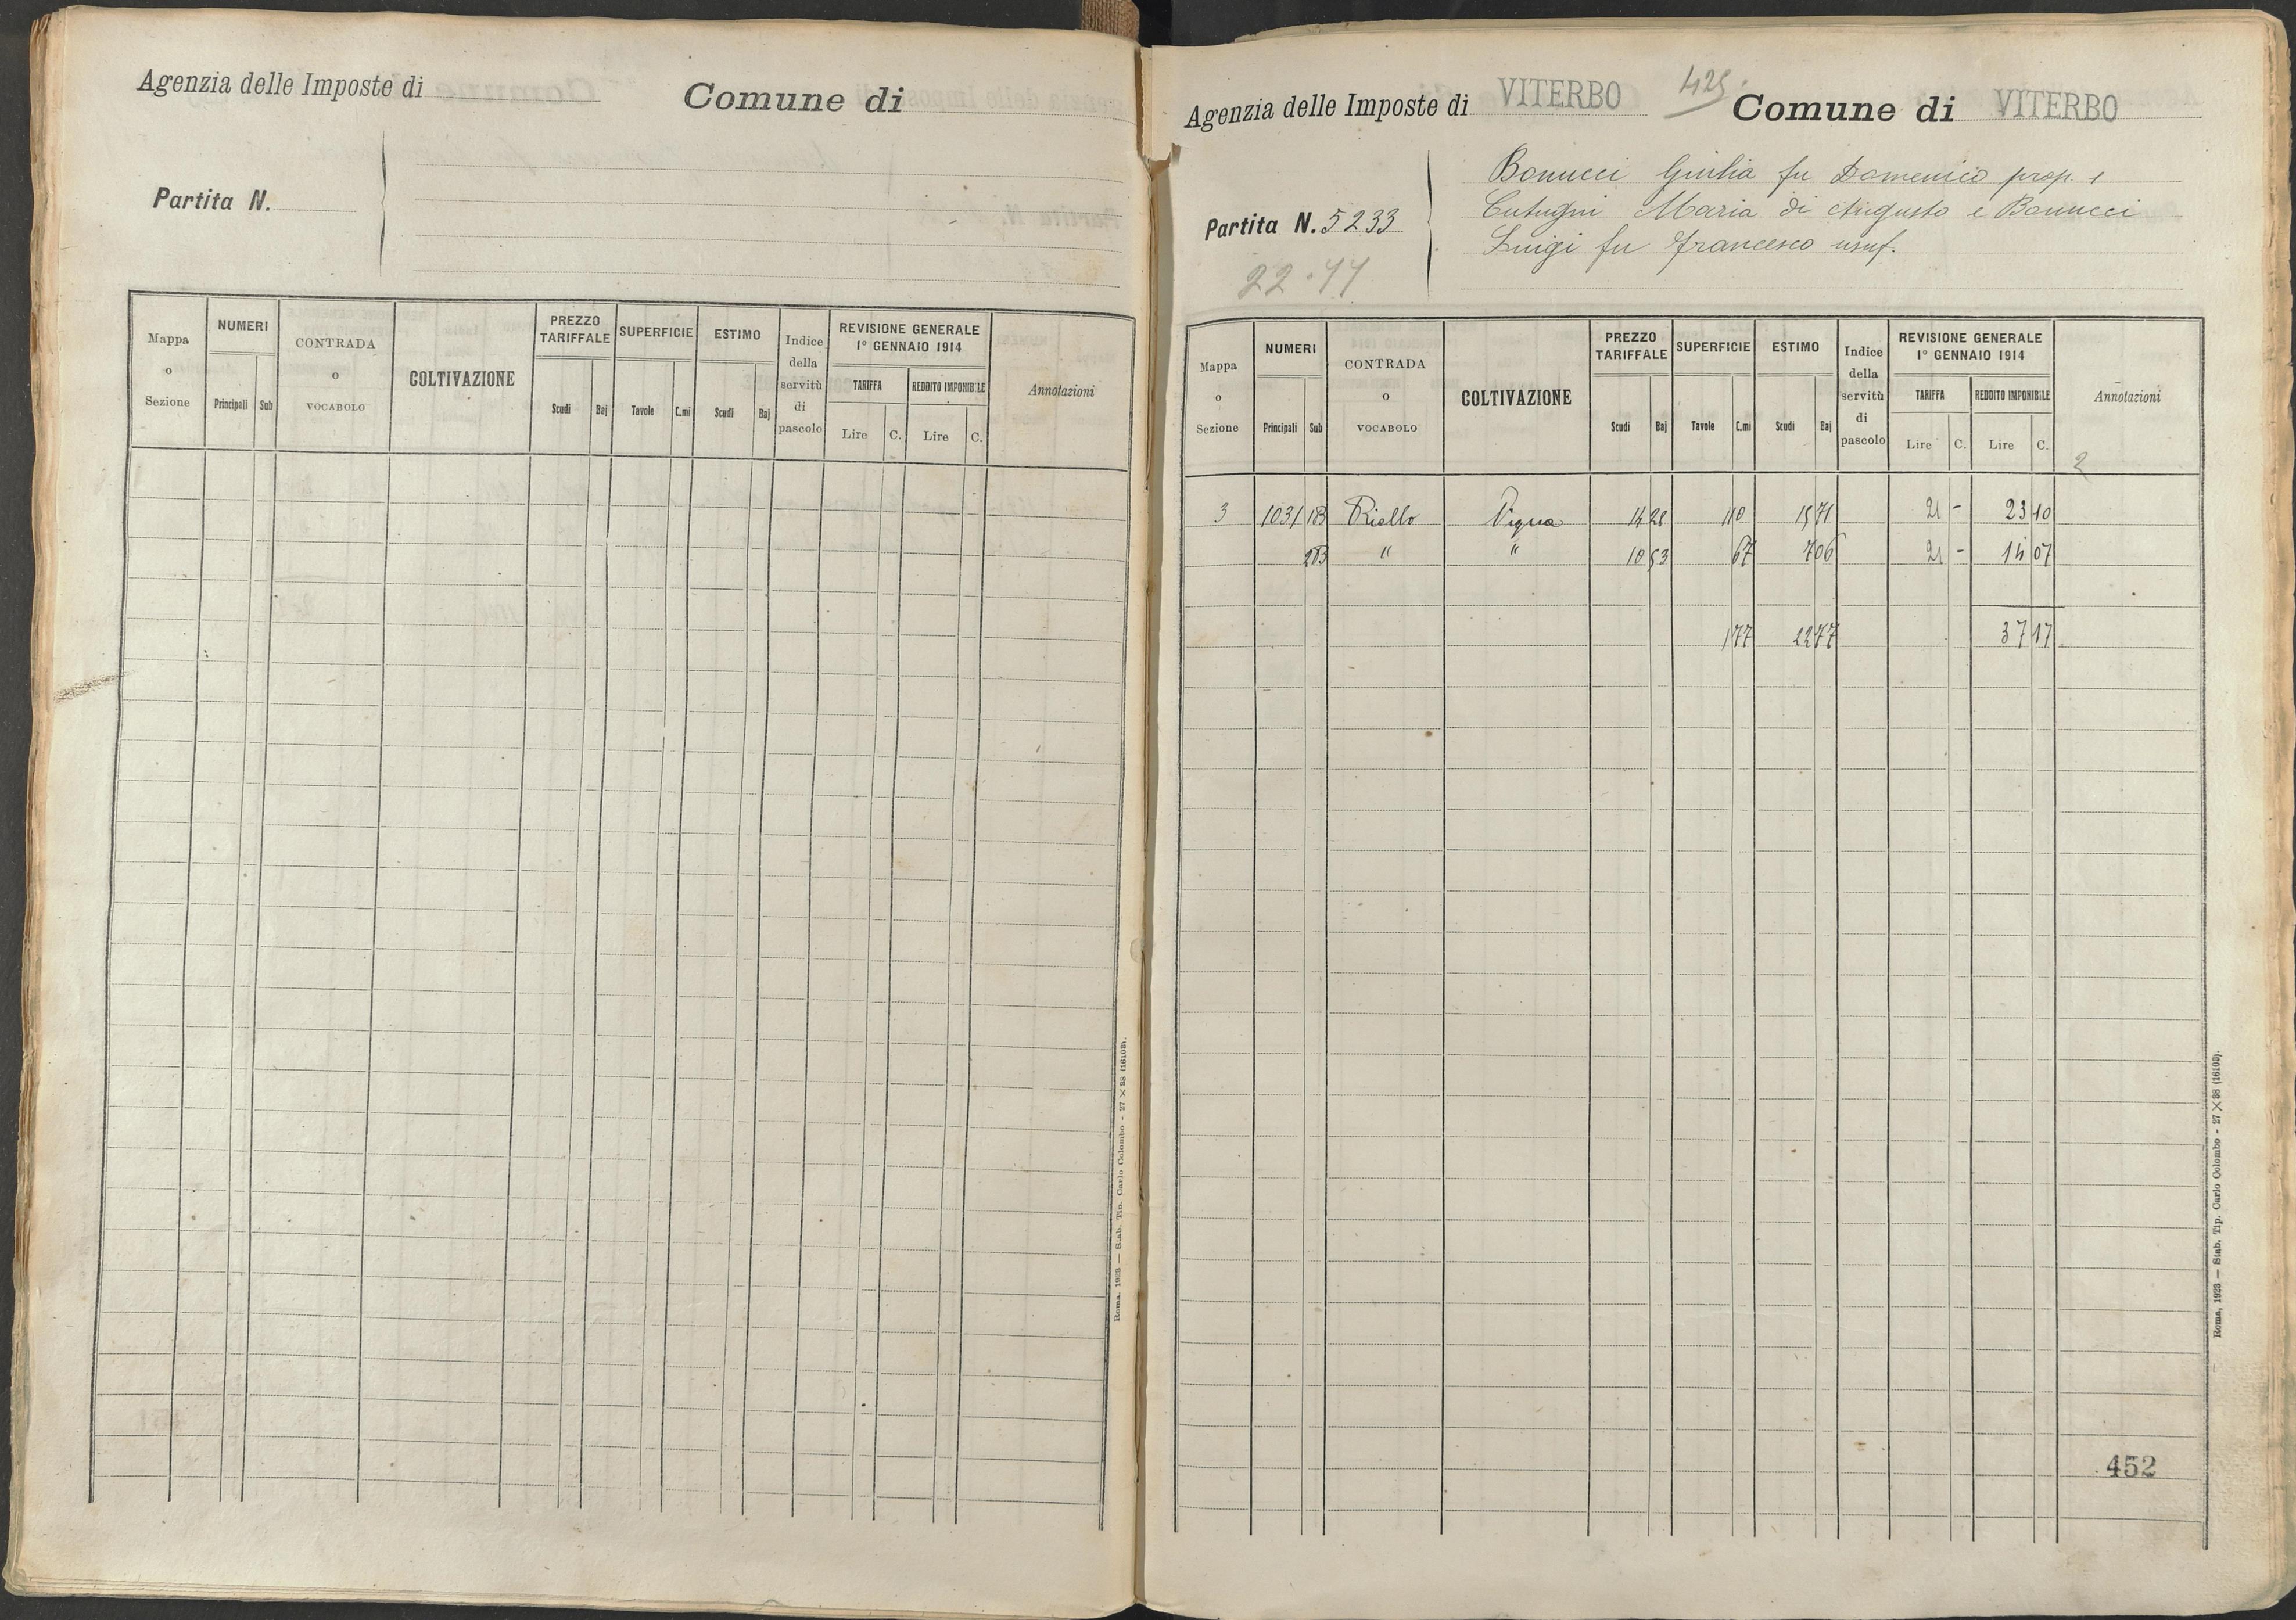 Agenzia delle Imposte di
Comune di
Partita N.
Mappa o Sezione
NUMERI
Principali Sub
CONTRADA o VOCABOLO
COLTIVAZIONE
PREZZO TARIFFALE
Scudi Baj
SUPERFICIE
Tavole C.mi
ESTIMO
Scudi Baj
Indice della servitù di pascolo
REVISIONE GENERALE
1° GENNAIO 1914
TARIFFA REDDITO IMPONIBILE
Lire C. Lire C.
Annotazioni
Roma, 1923 — Stab. Tip. Carlo Colombo - 27 × 38 (16103).
Agenzia delle Imposte di VITERBO
425
Comune di VITERBO
Partita N. 5233
22.77
Bonucci Giulia fu Domenico prop. e
Cutugni Maria di Augusto e Bonucci
Luigi fu Francesco usuf.
Mappa o Sezione
NUMERI
Principali Sub
CONTRADA o VOCABOLO
COLTIVAZIONE
PREZZO TARIFFALE
Scudi Baj
SUPERFICIE
Tavole C.mi
ESTIMO
Scudi Baj
Indice della servitù di pascolo
REVISIONE GENERALE
1° GENNAIO 1914
TARIFFA REDDITO IMPONIBILE
Lire C. Lire C.
Annotazioni
2
3 1031 Riello Vigna 14 28 1 10 15 71 21 - 23 10
" " 10 53 67 7 06 21 - 14 07
1 77 22 77 37 17
452
Roma, 1923 — Stab. Tip. Carlo Colombo - 27 × 38 (16103).